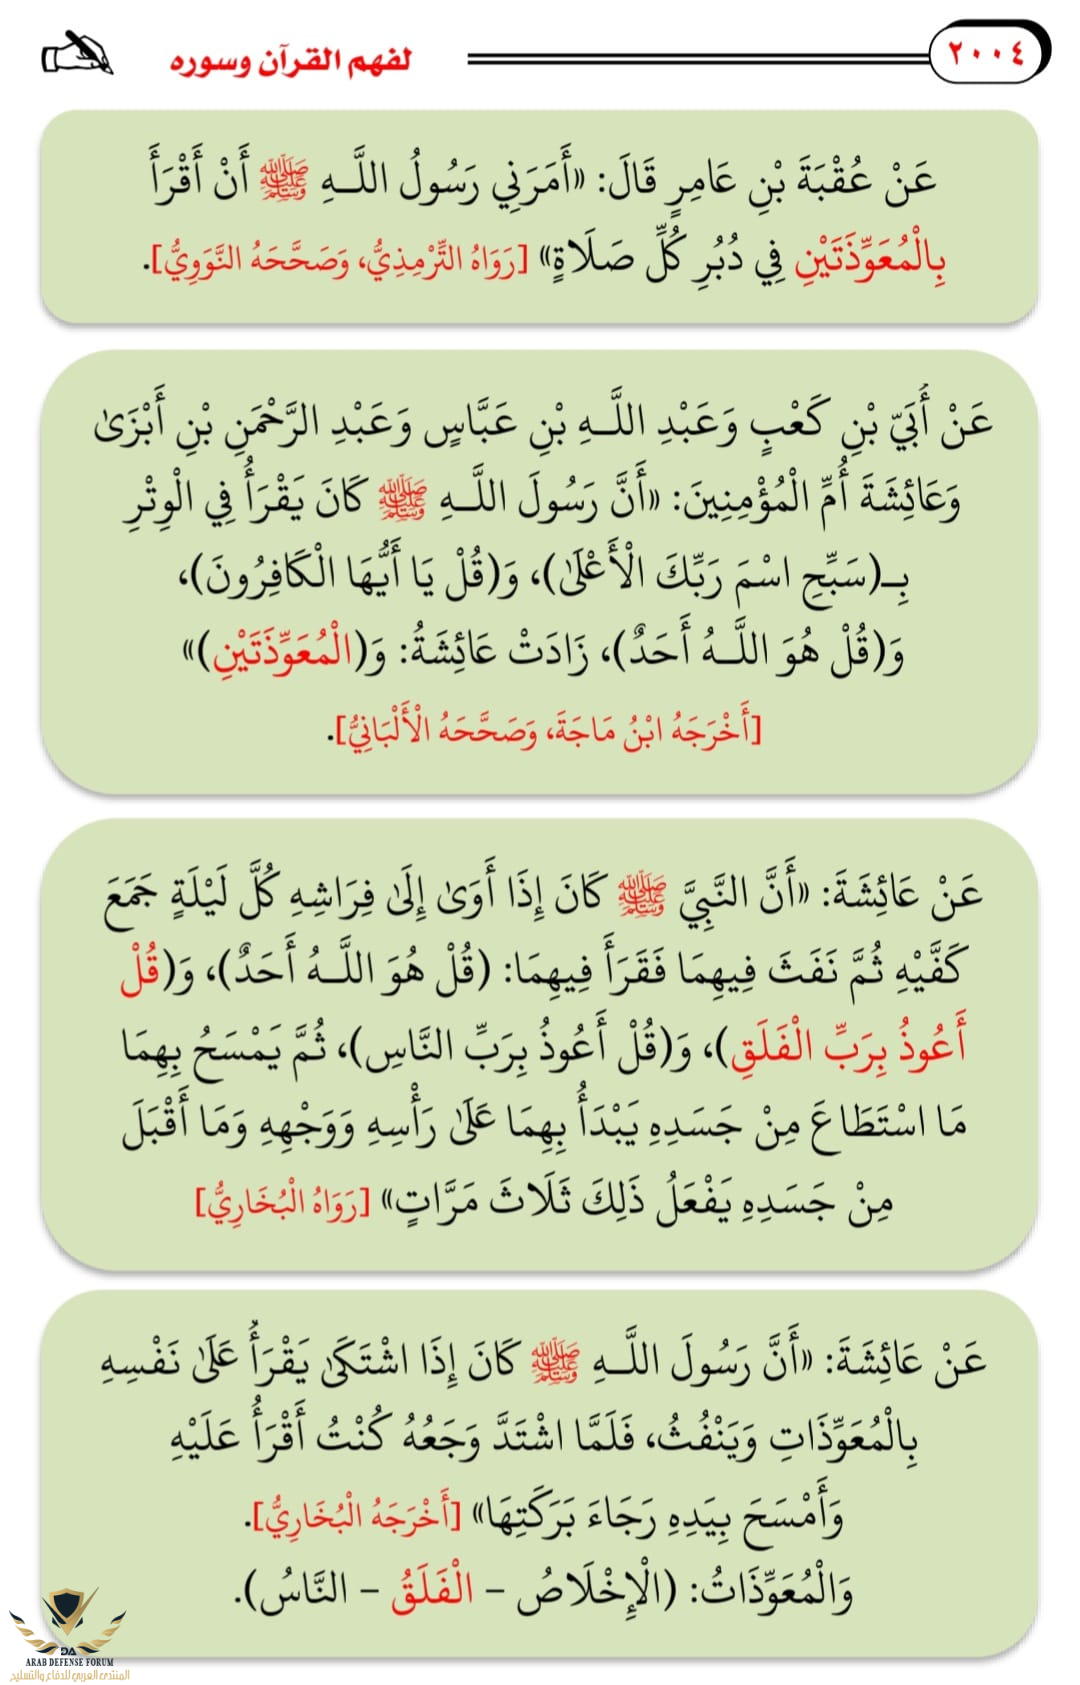 ٢٠٠٤
لفهم القرآن وسوره
عَنْ عُقْبَةَ بْنِ عَامِرٍ قَالَ: «أَمَرَنِي رَسُولُ اللَّـهِ ﷺ أَنْ أَقْرَأَ
بِالْمُعَوِّذَتَيْنِ فِي دُبُرِ كُلِّ صَلَاةٍ» [رَوَاهُ التِّرْمِذِيُّ، وَصَحَّحَهُ النَّوَوِيُّ].
عَنْ أُبَيِّ بْنِ كَعْبٍ وَعَبْدِ اللَّـهِ بْنِ عَبَّاسٍ وَعَبْدِ الرَّحْمَنِ بْنِ أَبْزَىٰ
وَعَائِشَةَ أُمِّ الْمُؤْمِنِينَ: «أَنَّ رَسُولَ اللَّـهِ ﷺ كَانَ يَقْرَأُ فِي الْوِتْرِ
بِـ(سَبِّحِ اسْمَ رَبِّكَ الْأَعْلَىٰ)، وَ(قُلْ يَا أَيُّهَا الْكَافِرُونَ)،
وَ(قُلْ هُوَ اللَّـهُ أَحَدٌ)، زَادَتْ عَائِشَةُ: وَ(الْمُعَوِّذَتَيْنِ)»
[أَخْرَجَهُ ابْنُ مَاجَةَ، وَصَحَّحَهُ الْأَلْبَانِيُّ].
عَنْ عَائِشَةَ: «أَنَّ النَّبِيَّ ﷺ كَانَ إِذَا أَوَىٰ إِلَىٰ فِرَاشِهِ كُلَّ لَيْلَةٍ جَمَعَ
كَفَّيْهِ ثُمَّ نَفَثَ فِيهِمَا فَقَرَأَ فِيهِمَا: (قُلْ هُوَ اللَّـهُ أَحَدٌ)، وَ(قُلْ
أَعُوذُ بِرَبِّ الْفَلَقِ)، وَ(قُلْ أَعُوذُ بِرَبِّ النَّاسِ)، ثُمَّ يَمْسَحُ بِهِمَا
مَا اسْتَطَاعَ مِنْ جَسَدِهِ يَبْدَأُ بِهِمَا عَلَىٰ رَأْسِهِ وَوَجْهِهِ وَمَا أَقْبَلَ
مِنْ جَسَدِهِ يَفْعَلُ ذَلِكَ ثَلَاثَ مَرَّاتٍ» [رَوَاهُ الْبُخَارِيُّ]
عَنْ عَائِشَةَ: «أَنَّ رَسُولَ اللَّـهِ ﷺ كَانَ إِذَا اشْتَكَىٰ يَقْرَأُ عَلَىٰ نَفْسِهِ
بِالْمُعَوِّذَاتِ وَيَنْفُثُ، فَلَمَّا اشْتَدَّ وَجَعُهُ كُنْتُ أَقْرَأُ عَلَيْهِ
وَأَمْسَحَ بِيَدِهِ رَجَاءَ بَرَكَتِهَا» [أَخْرَجَهُ الْبُخَارِيُّ].
وَالْمُعَوِّذَاتُ: (الْإِخْلَاصُ – الْفَلَقُ – النَّاسُ).
DA
ARAB DEFENSE FORUM
المنتدى العربي للدفاع والتسليح